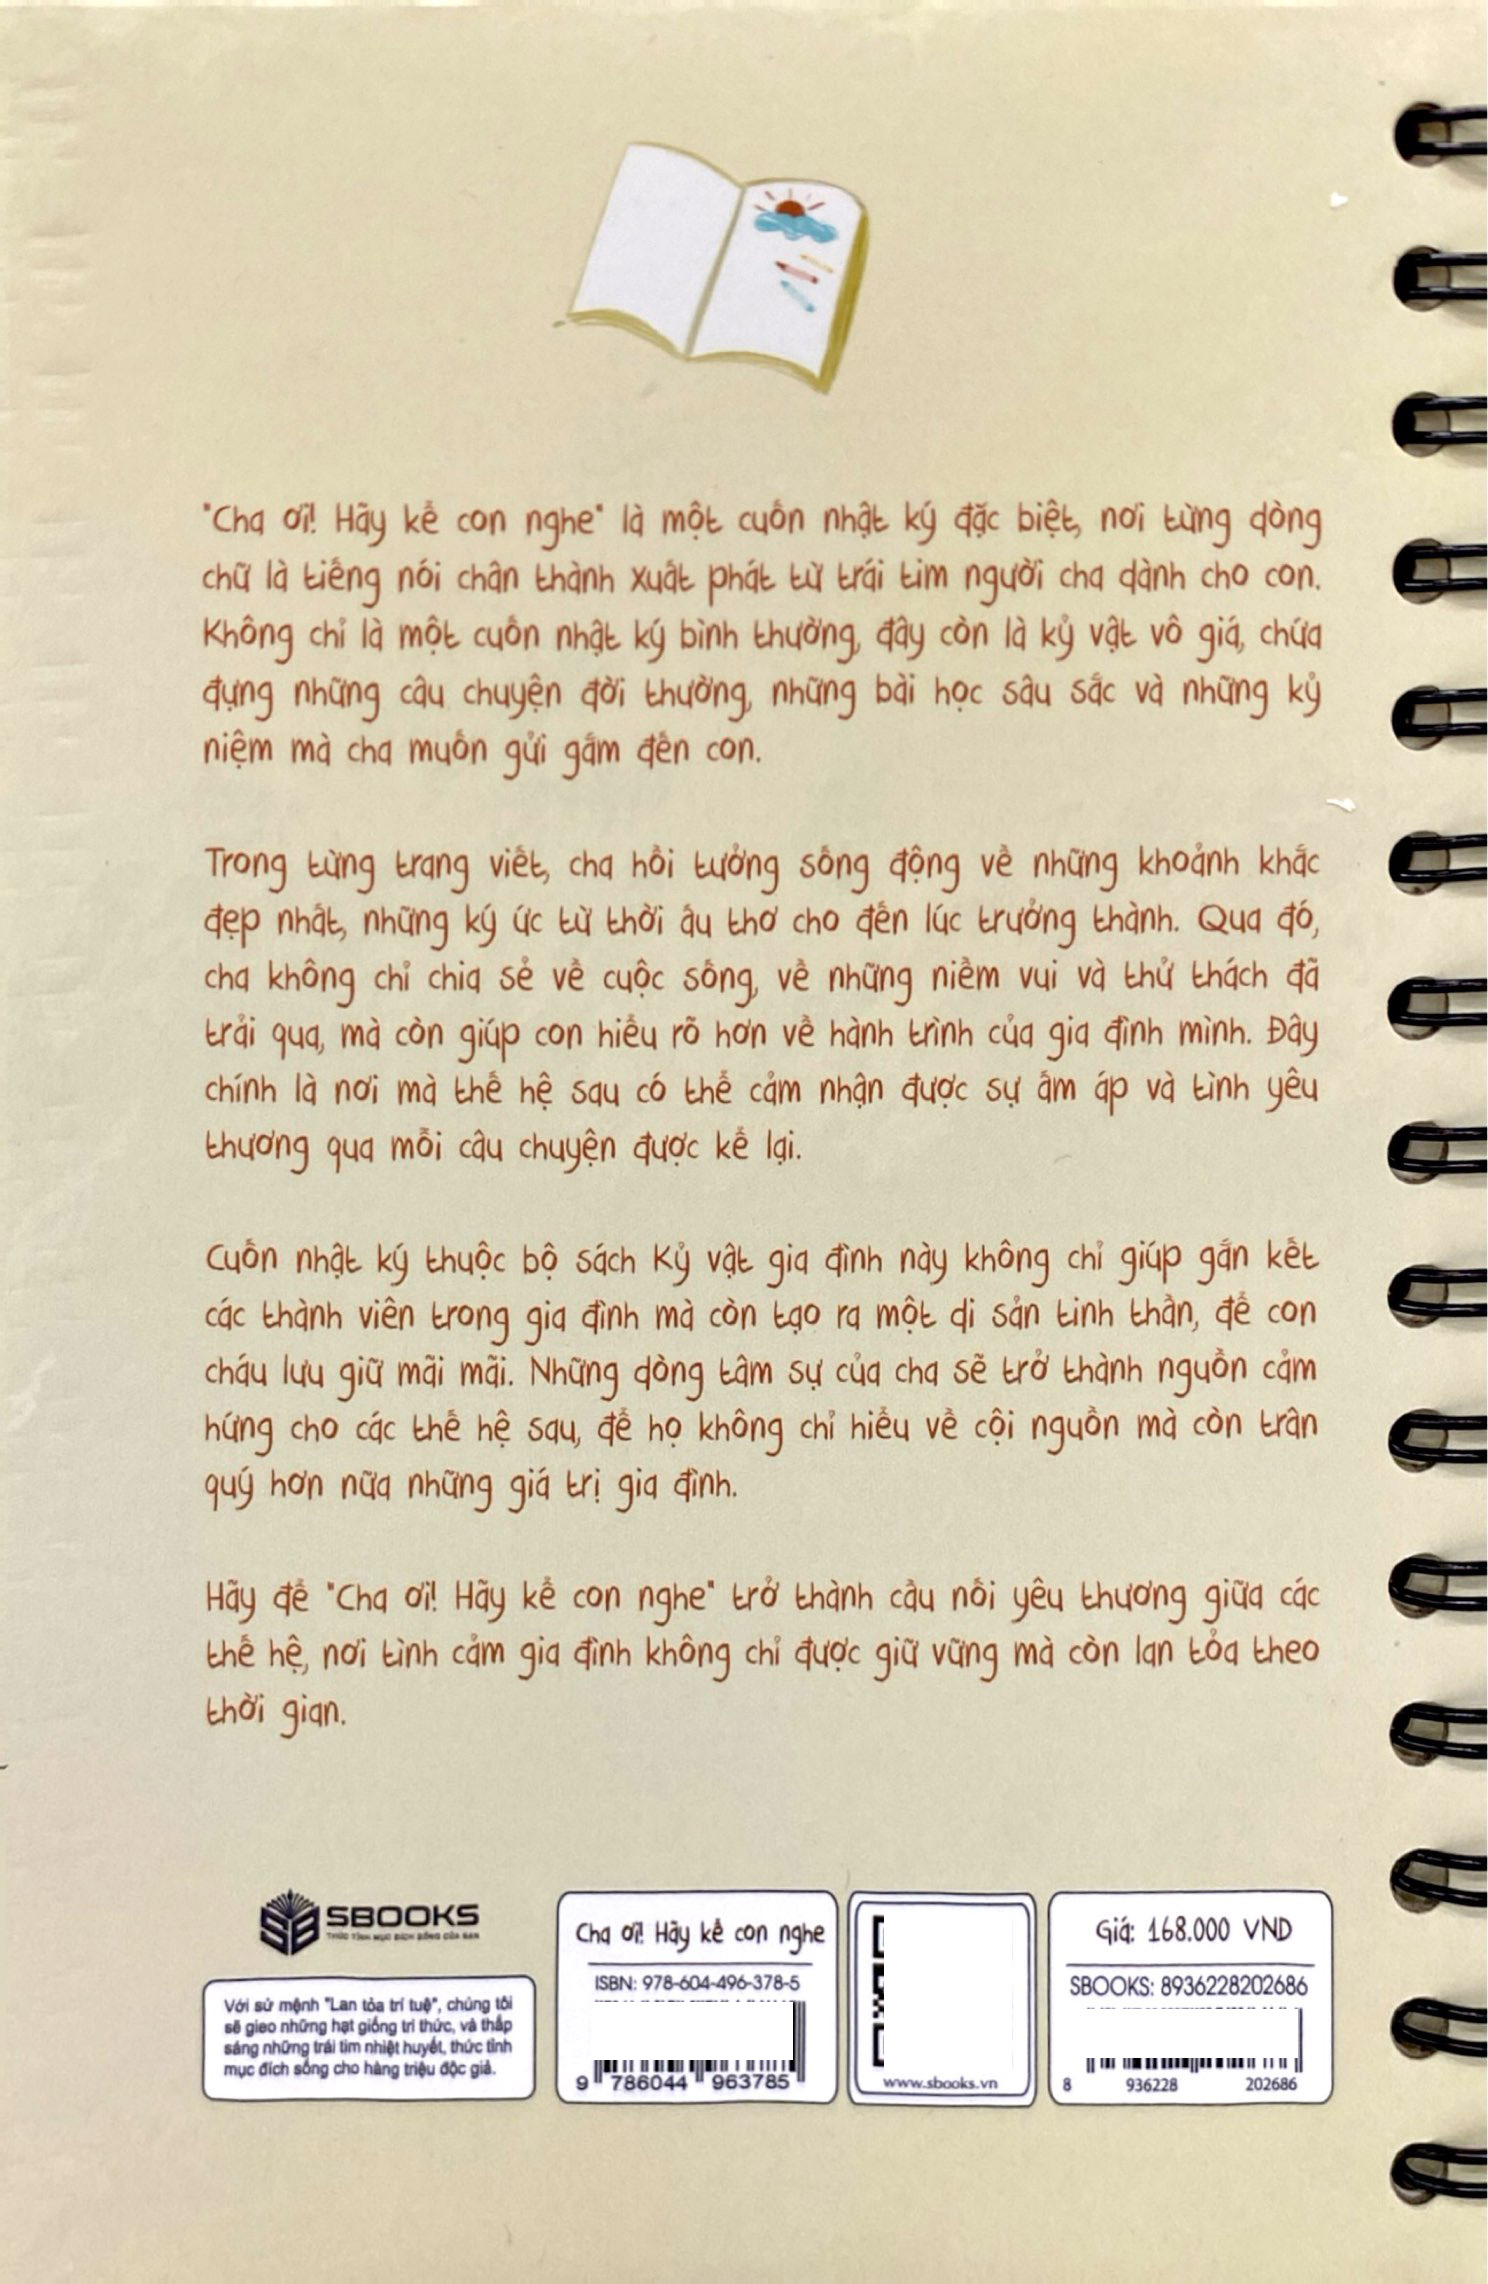 "Cha ơi! Hãy kể con nghe" là một cuốn nhật ký đặc biệt, nơi từng dòng
chữ là tiếng nói chân thành xuất phát từ trái tim người cha dành cho con.
Không chỉ là một cuốn nhật ký bình thường, đây còn là kỷ vật vô giá, chứa
đựng những câu chuyện đời thường, những bài học sâu sắc và những kỷ
niệm mà cha muốn gửi gắm đến con.
Trong từng trang viết, cha hồi tưởng sống động về những khoảnh khắc
đẹp nhất, những ký ức từ thời ấu thơ cho đến lúc trưởng thành. Qua đó,
cha không chỉ chia sẻ về cuộc sống, về những niềm vui và thử thách đã
trải qua, mà còn giúp con hiểu rõ hơn về hành trình của gia đình mình. Đây
chính là nơi mà thế hệ sau có thể cảm nhận được sự ấm áp và tình yêu
thương qua mỗi câu chuyện được kể lại.
Cuốn nhật ký thuộc bộ sách Kỷ vật gia đình này không chỉ giúp gắn kết
các thành viên trong gia đình mà còn tạo ra một di sản tinh thần, để con
cháu lưu giữ mãi mãi. Những dòng tâm sự của cha sẽ trở thành nguồn cảm
hứng cho các thế hệ sau, để họ không chỉ hiểu về cội nguồn mà còn trân
quý hơn nữa những giá trị gia đình.
Hãy để "Cha ơi! Hãy kể con nghe" trở thành cầu nối yêu thương giữa các
thế hệ, nơi tình cảm gia đình không chỉ được giữ vững mà còn lan tỏa theo
thời gian.
SBOOKS
THỨC TỈNH MỤC ĐÍCH SỐNG CỦA BẠN
Với sứ mệnh "Lan tỏa trí tuệ", chúng tôi
sẽ gieo những hạt giống tri thức, và thắp
sáng những trái tim nhiệt huyết, thức tỉnh
mục đích sống cho hàng triệu độc giả.
Cha ơi! Hãy kể con nghe
ISBN: 978-604-496-378-5
9 786044 963785
www.sbooks.vn
Giá: 168.000 VND
SBOOKS: 8936228202686
8 936228 202686